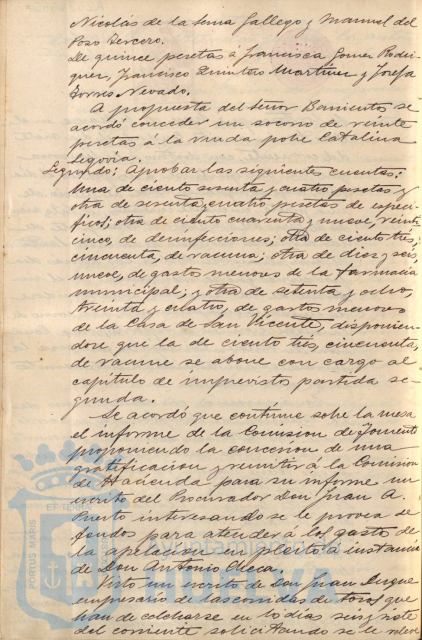 Nicolás de la Lema Gallego y Manuel del
Pozo Tercero.
De quince pesetas á Francisca Gomez Rodri-
guez, Francisco Martinez y Josefa
Torres Nevado.
A propuesta del Señor Barrientos se
acordó conceder un socorro de veinte
pesetas á la viuda pobre Catalina
Segovia.
Segundo: Aprobar las siguientes cuentas:
Una de ciento sesenta y cuatro pesetas y
otra de sesenta y cuatro pesetas de especí-
ficos; otra de ciento cuarenta y nueve, veinti
cinco, de desinfecciones; otra de ciento tres,
cincuenta, de vacuna; otra de diez y seis,
nueve, de gastos menores de la farmacia
municipal; y otra de setenta y ocho,
treinta y cuatro, de gastos menores
de la Casa de San Vicente, disponien-
dose que la de ciento tres, cincuenta,
de vacune se abone con cargo al
capítulo de imprevistos partida se-
gunda.
Se acordó que continue sobre la mesa
el informe de la Comision de Fomento
proponiendo la concesion de una
gratificacion y remitir á la Comision
de Hacienda para su informe un
escrito del Procurador Don Juan A.
interesando se le provea de
fondos para atender á los gastos de
la apelacion en pleito á instancia
de Don Antonio Checa.
Visto un escrito de Don Juan Duque
empresario de las corridas de toros que
han de celebrarse en los dias seis y siete
del corriente solicitando se le releve
PORTUS MARIS